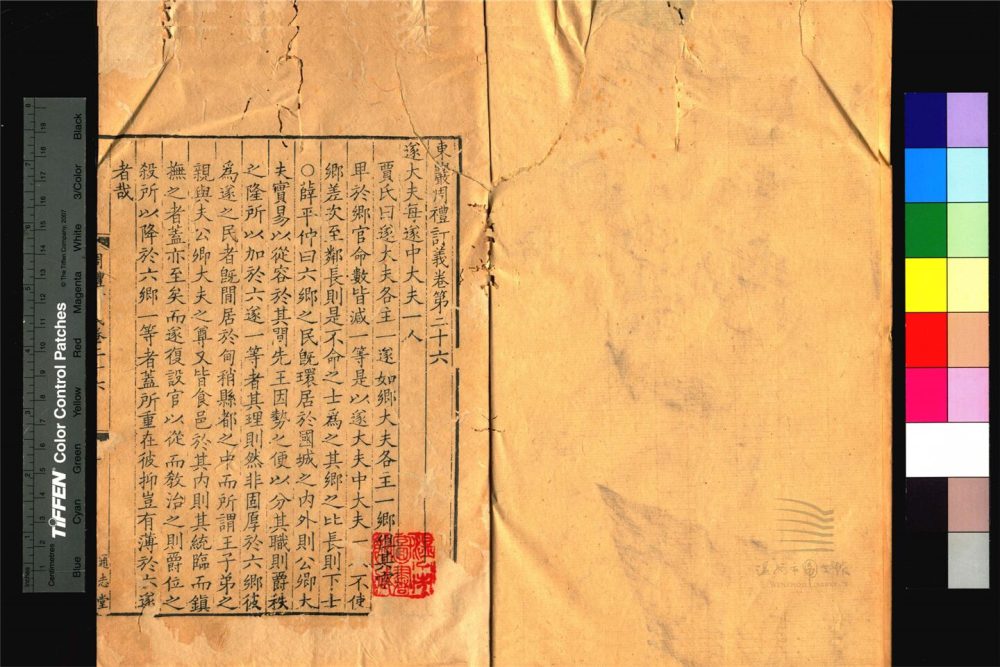 東巖周禮訂義卷第二十六
遂大夫每遂中大夫一人
賈氏曰遂大夫各主一遂如鄉大夫各主一鄉但其爵
卑於鄉官命數皆減一等是以遂大夫中大夫一人不使
鄉差次至鄰長則是不命之士爲之其鄉之比長則下士
○薛平仲曰六鄉之民旣環居於國城之內外則公卿大
夫實易以從容於其間先王因勢之便以分其職則爵秩
之隆所以加於六遂一等者其理則然非固厚於六鄉彼
爲遂之民者旣閒居於甸稍縣都之中而所謂王子弟之
親與夫公卿大夫之尊又皆食邑於其內則其統臨而鎭
撫之者蓋亦至矣而遂復設官以從而敎治之則爵位之
殺所以降於六鄉一等者蓋所重在彼抑豈有薄於六遂
者哉
通志堂
TIFFEN Color Control Patches
© The Tiffen Company, 2007
Inches
Centimetres
Blue
Cyan
Green
Yellow
Red
Magenta
White
3/Color
Black